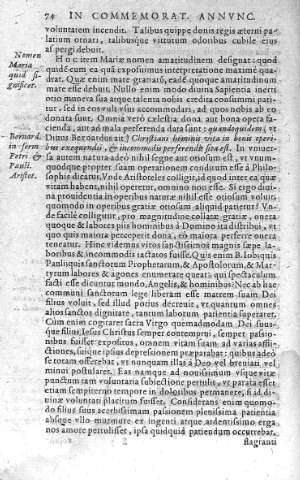 74 IN COMMEMORAT. ANNVNC.
voluntatem incendit. Talibus quippe donis regis æterni pa-
latium ornari, talibusque virtutum odoribus cubile eius
aspergi decuit.
Nomen
Mariæ
quid si-
gnificet.
Hoc item Mariæ nomen amaritudinem designat: quod
quidē cum ea quā exposuimus interpretatione maximè qua-
drat. Quæ enim mare gratiæ est, eadē quoque amaritudinis
mare esse debuit. Nullo enim modo diuina Sapientia inerti
otio munera sua atque talenta nobis credita consumi pati-
tur, sed in eos vsus accommodari, ad quos nobis ab eo do-
nata sunt. Omnia verò cælestia dona aut bona opera fa-
cienda, aut ad mala perferenda data sunt: quandoquidem, vt
Bernard.
in serm
Petri &
Pauli.
Aristot.
Diuus Bernardus ait) Christiani hominis vita in bonis operi-
bus exequendis, & incommodis perferendis sita est. In vniuer-
sa autem natura adeò nihil segne aut otiosum est, vt vnum-
quodque propter suam operationem conditum esse à Philo-
sophis dicatur. Vnde Aristoteles colligit, id quod inter ea quæ
vitam habent, nihil operetur, omnino non esse. Si ergo diui-
na prouidentia in operibus naturæ nihil esse otiosum voluit,
quomodo in operibus gratiæ otiosum aliquid patietur? Vn-
de facilè colligitur, pro magnitudine collatæ gratiæ, onera
quoque & labores piis hominibus à Domino ita distribui, vt
quo quis maiora perceperit dona, eò maiora perferre onera
teneatur. Hinc videmus viros sanctissimos magnis sæpe la-
boribus & incommodis iactatos fuisse. Quis enim B. Iobi, quis
Pauli, quis sanctorum Prophetarum, & Apostolorum, & Mar-
tyrum labores & agones enumerare queat? qui spectaculum
facti esse dicuntur mundo, Angelis, & hominibus? Nec ab hac
communi sanctorum lege liberam esse matrem suam Dei
filius voluit, sed illud potius decreuit, vt quantum omnes
alios sanctos dignitate, tantum laborum patientia superaret.
Cùm enim cogitaret sacra Virgo quemadmodum Dei suus-
que filius, Iesus Christus semper contemptui, semper passio-
nibus fuisset expositus, omnem vitam suam ad varias affli-
ctiones, suique ipsius depressionem præparabat: quibus adeò
se totam offerebat, vt nunquam illas à Deo vel breuiari vel
minui postularet. Eas namque ad nouissimum vsque vitæ
punctum tam voluntaria subiectione pertulit, vt parata esset
etiam sempiterno tempore in doloribus permanere, si ad di-
uinæ voluntati placitum fuisset. Considerans enim quomo-
do filius suus acerbissimam passionem plenissima patientia
absque vllo murmure ex ingenti atque ardentissimo erga
nos amore pertulisset, ipsa quidquid patiendum occurrebat,
flagranti